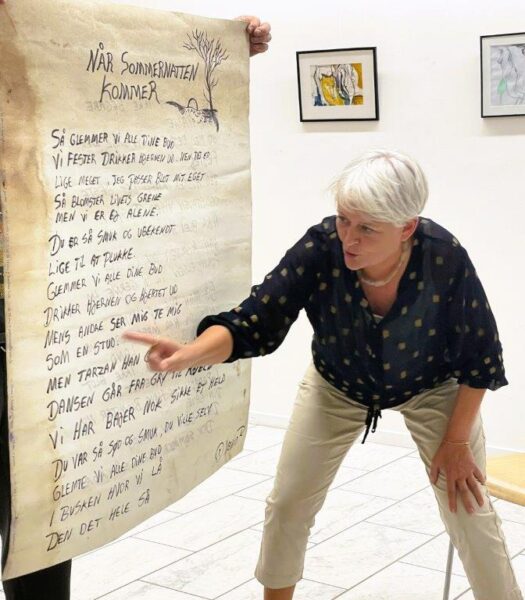 NÅR SOMMERNATTEN
KOMMER
SÅ GLEMMER VI ALLE DINE BUD
VI FESTER DRIKKER HJERNEN UD. MEN DET ER
LIGE MEGET, JEG PASSER BLOT MIT EGET
SÅ BLOMSTER LIVETS GRENE
MEN VI ER EJ ALENE.
DU ER SÅ SMUK OG UBEKENDT
LIGE TIL AT PLUKKE.
GLEMMER VI ALLE DINE BUD
DRIKKER HJERNEN OG HJERTET UD
MENS ANDRE SER MIG TE MIG
SOM EN STUD.
MEN TARZAN HAN
DANSEN GÅR FRA GRY TIL
VI HAR BAJER NOK SIKKE ET HELD
DU VAR SÅ SØD OG SMUK, DU VILLE SELV
GLEMTE VI ALLE DINE BUD
I BUSKEN HVOR VI LÅ
DEN DET HELE SÅ